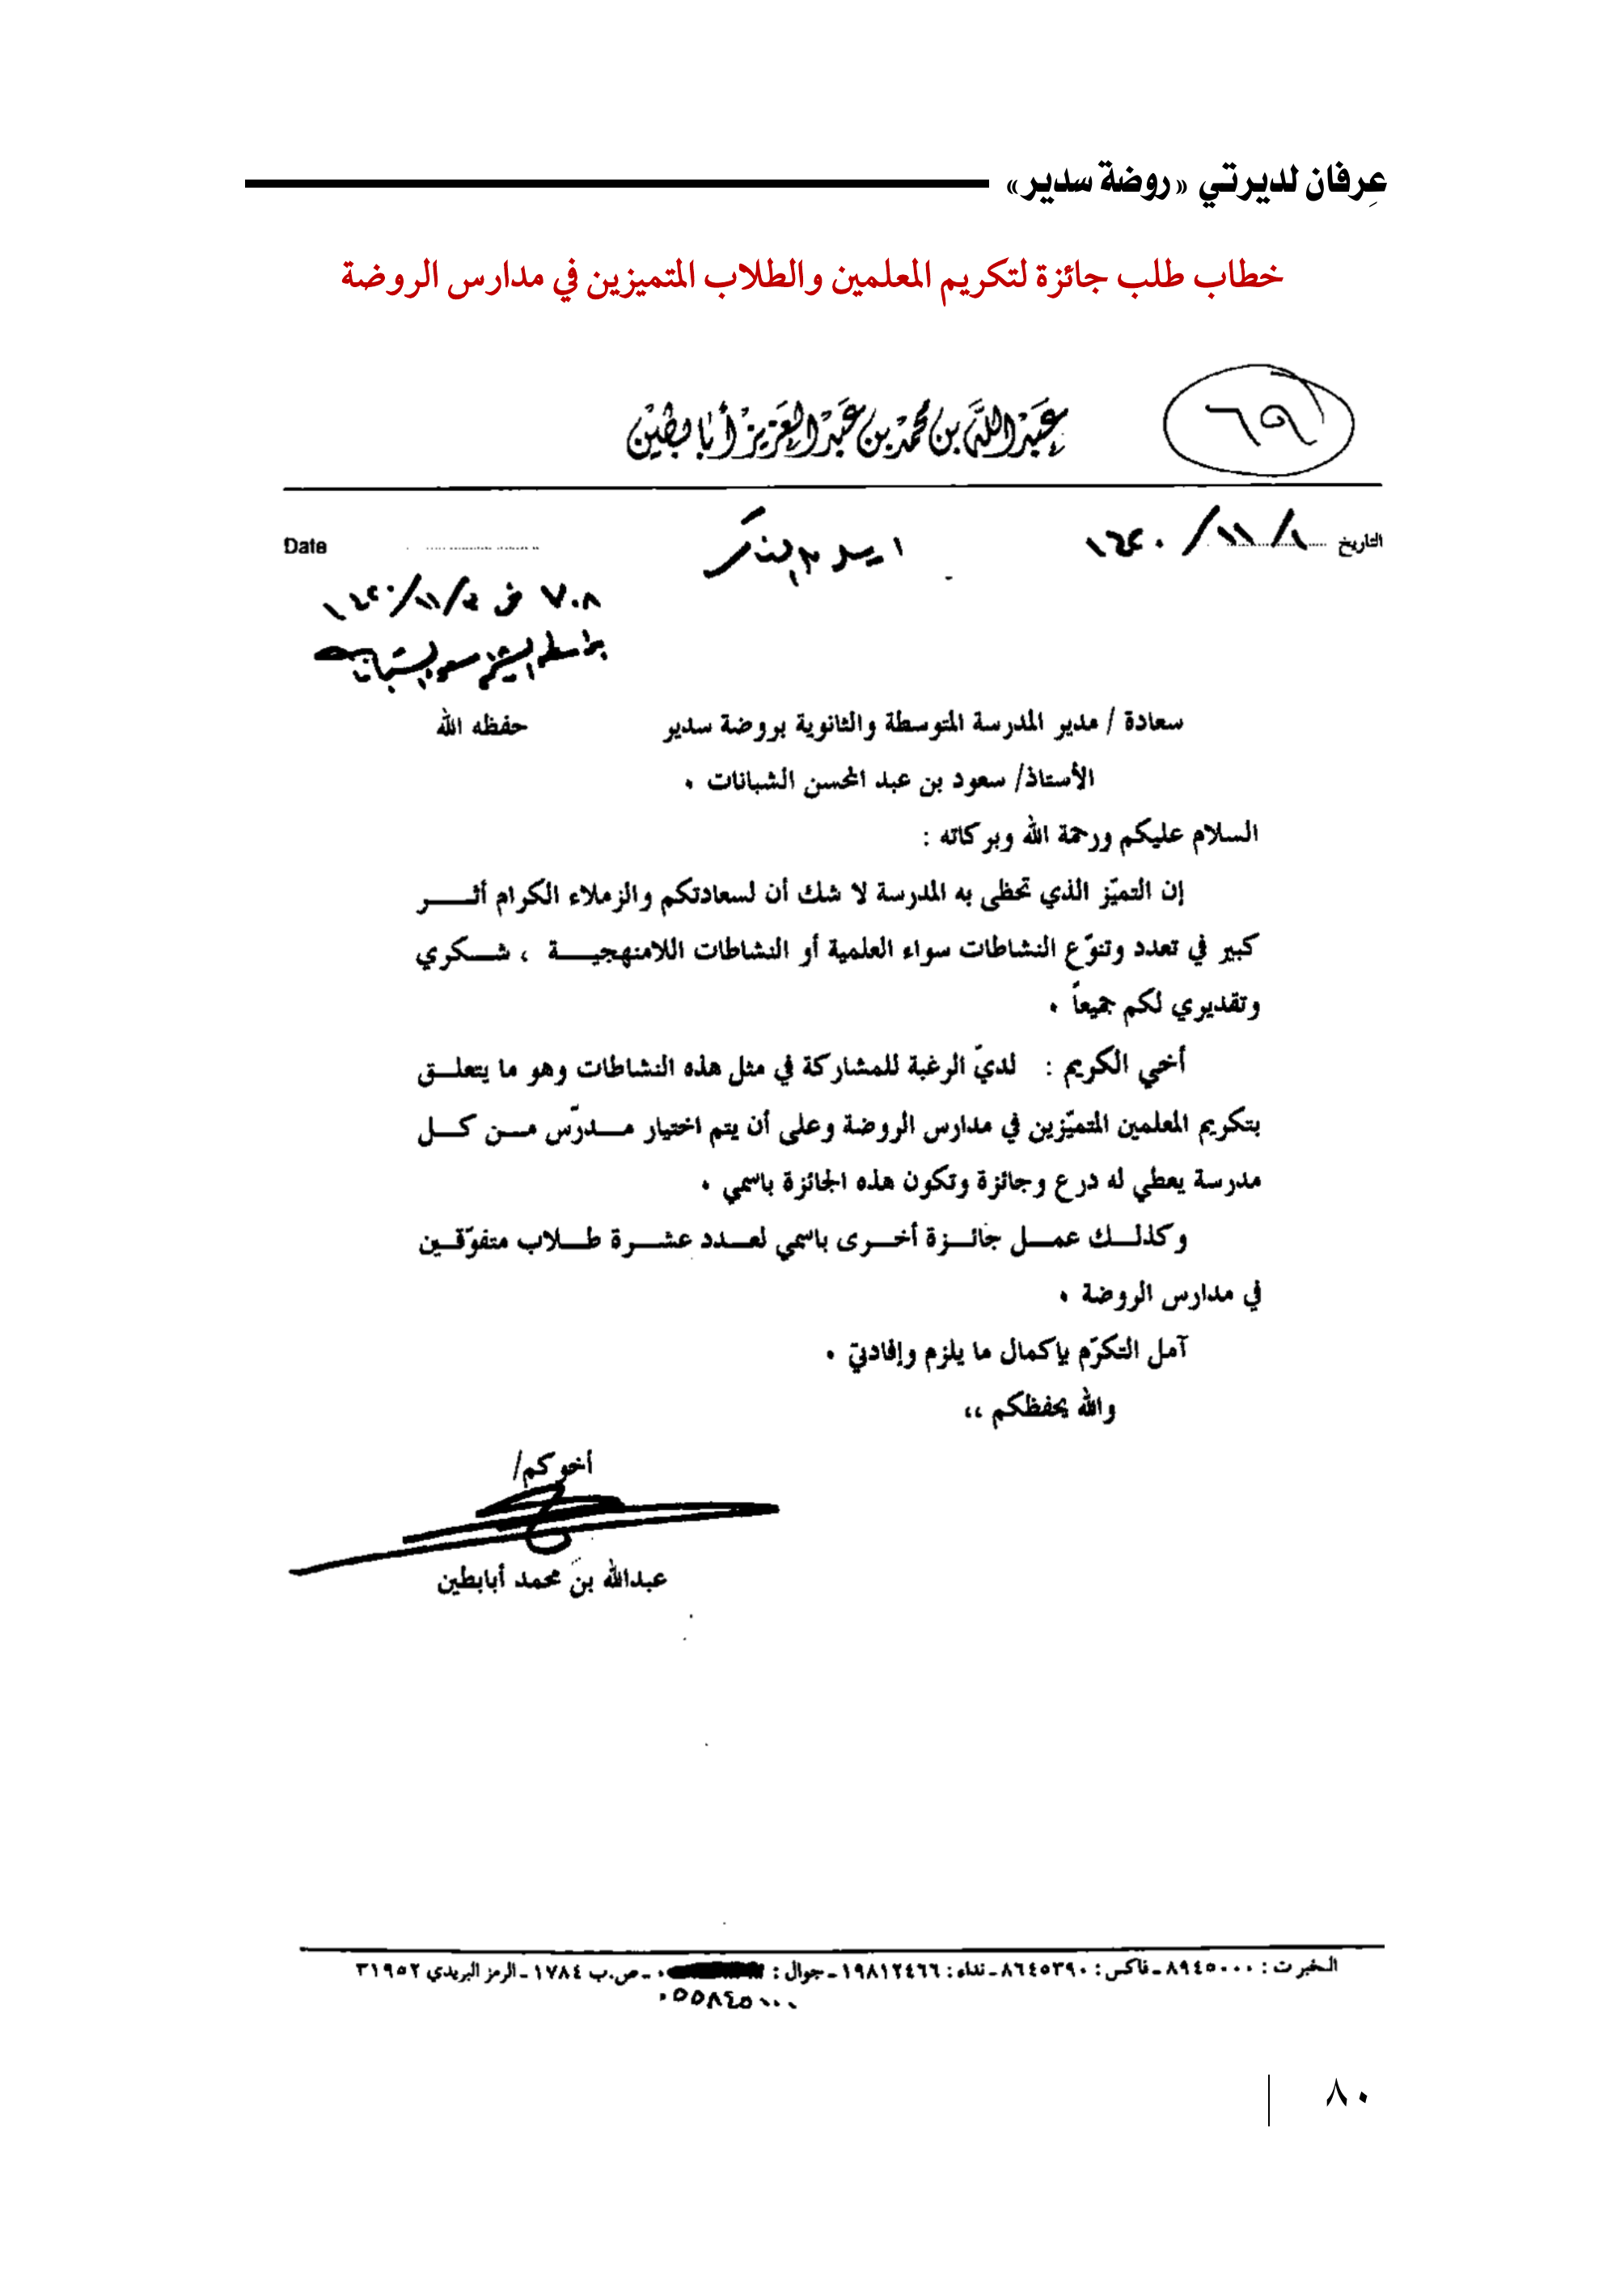 عِرفان لديرتي «روضة سدير»
خطاب طلب جائزة لتكريم المعلمين والطلاب المتميزين في مدارس الروضة
٦٩
عبد الله بن محمد بن عبد العزيز أبابطين
التاريخ ١/١١/١٤٢٠
Date
٧٠٨ في
سعادة / مدير المدرسة المتوسطة والثانوية بروضة سدير حفظه الله
الأستاذ/ سعود بن عبد المحسن الشبانات .
السلام عليكم ورحمة الله وبركاته :
إن التميّز الذي تحظى به المدرسة لا شك أن لسعادتكم والزملاء الكرام أثر
كبير في تعدد وتنوّع النشاطات سواء العلمية أو النشاطات اللامنهجية ، شكري
وتقديري لكم جميعاً .
أخي الكريم : لديّ الرغبة للمشاركة في مثل هذه النشاطات وهو ما يتعلق
بتكريم المعلمين المتميّزين في مدارس الروضة وعلى أن يتم اختيار مدرّس من كل
مدرسة يعطي له درع وجائزة وتكون هذه الجائزة باسمي .
وكذلك عمل جائزة أخرى باسمي لعدد عشرة طلاب متفوّقين
في مدارس الروضة .
آمل التكرّم بإكمال ما يلزم وإفادتي .
والله يحفظكم ،،
أخوكم/
عبدالله بن محمد أبابطين
الخبر ت : ٨٩٤٥٠٠٠ ـ فاكس : ٨٦٤٥٣٩٠ ـ نداء : ١٩٨١٢٤٦٦ ـ جوال : ٠ ـ ص.ب ١٧٨٤ ـ الرمز البريدي ٣١٩٥٢
٠٥٥٨٤٥٠٠٠
٨٠